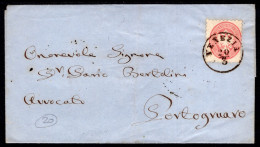 VENEZIA
20
Onorevole Signore
Sr. Dario Bertolini
Avvocato
Portogruaro
20